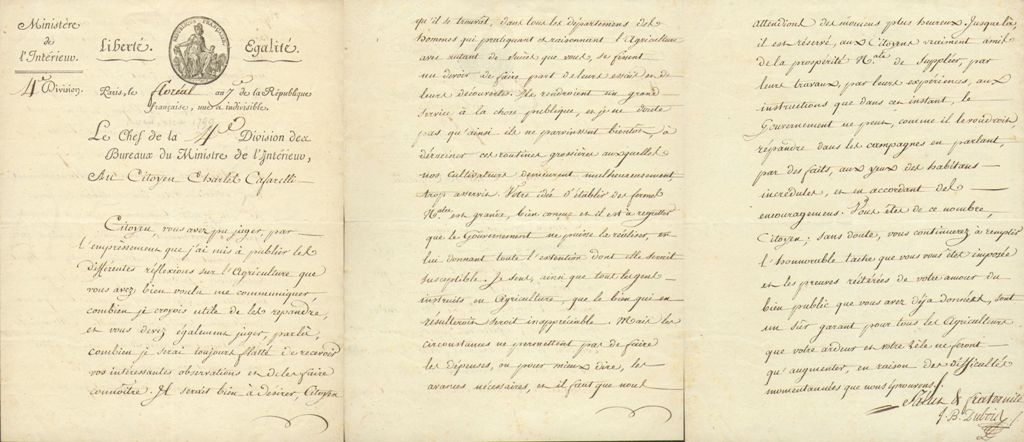 Ministère
des
l'Intérieur.
4.e Division.
Liberté.
RÉPUBLIQUE FRANÇAISE
Egalité.
Paris, le floréal an 7 de la République
française, une & indivisible.
Le Chef de la 4.e Division des
Bureaux du Ministre de l'Intérieur,
Au Citoyen Charles Cafarelli
Citoyen, vous avez pu juger, par
l'empressement que j'ai mis à publier les
différentes réflexions sur l'Agriculture que
vous avez bien voulu me communiquer,
combien je croyois utile de les repandre,
et vous devez également juger, par là,
combien je serai toujours flatté de recevoir
vos intéressantes observations et de les faire
connoître. Il serait bien à désirer, Citoyen
qu'il se trouvât, dans tous les départemens des
hommes qui pratiquant et raisonnant l'Agriculture
avec autant de succès que vous, se fissent
un devoir de faire part de leurs essais et de
leurs découvertes. Ils rendroient un grand
service à la chose publique, et je ne doute
pas qu'ainsi ils ne parvinssent bientôt, à
déraciner ces routines grossières auxquelles
nos cultivateurs demeurent malheureusement
trop asservis. Votre idée d'établir des fermes
N.ales est grande, bien conçue et il est à regretter
que le Gouvernement ne puisse la réaliser, en
lui donnant toute l'extention dont elle seroit
susceptible. Je sens, ainsi que tous les gens
instruits en Agriculture, que le bien qui en
résulteroit seroit inappréciable. Mais les
circonstances ne permettent pas de faire
les dépenses, ou pour mieux dire, les
avances nécessaires, et il faut que nous
attendions des momens plus heureux. Jusques là,
il est réservé, aux Citoyens vraiment amis
de la prospérité N.ale de suppléer, par
leurs travaux, par leurs expériences, aux
instructions que dans cet instant, le
Gouvernement ne peut, comme il le voudroit,
répandre dans les campagnes en parlant,
par des faits, aux yeux des habitans
incrédules, et en accordant des
encouragemens. Vous êtes de ce nombre,
Citoyen; sans doute, vous continuerez à remplir
l'honnorable tâche que vous vous êtes imposée
et les preuves réitérées de votre amour du
bien public que vous avez déja données, sont
un sûr garant pour tous les Agriculteurs
que votre ardeur et votre zèle ne feront
qu'augmenter, en raison des difficultés
momentannées que nous éprouvons.
Salut & fraternité
J. B. Dubois